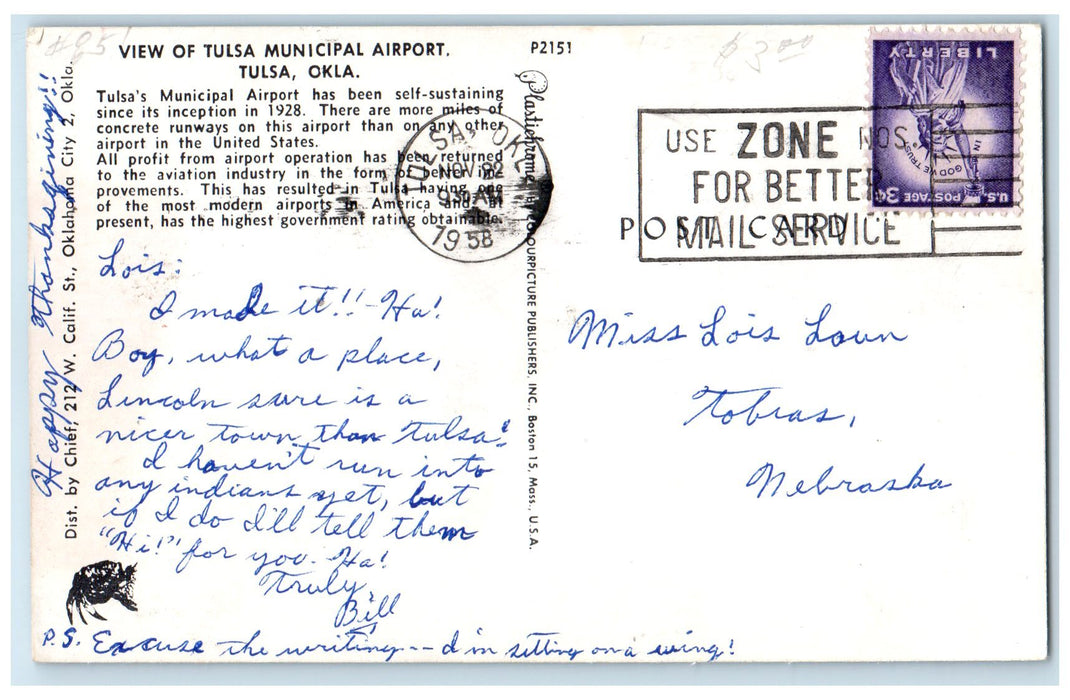 #85
$3.00
VIEW OF TULSA MUNICIPAL AIRPORT.
TULSA, OKLA.
P2151
Tulsa's Municipal Airport has been self-sustaining
since its inception in 1928. There are more miles of
concrete runways on this airport than on any other
airport in the United States.
All profit from airport operation has been returned
to the aviation industry in the form of better im-
provements. This has resulted in Tulsa having one
of the most modern airports in America and, at
present, has the highest government rating obtainable.
TULSA, OKLA.
NOV 22
930 AM
1958
USE ZONE NOS.
FOR BETTER
MAIL SERVICE
LIBERTY
IN GOD WE TRUST
U.S. POSTAGE 3¢
POST CARD
Plastichrome
COLOURPICTURE PUBLISHERS, INC., Boston 15, Mass., U.S.A.
Dist. by Chief, 212 W. Calif. St., Oklahoma City 2, Okla.
Happy Thanksgiving!!
Lois:
I made it!! - Ha!
Boy, what a place,
Lincoln sure is a
nicer town than Tulsa!
I haven't run into
any indians yet, but
if I do I'll tell them
"Hi!" for you. Ha!
Truly,
Bill
P.S. Excuse the writing -- I'm sitting on a wing!
Miss Lois
Tobias,
Nebraska